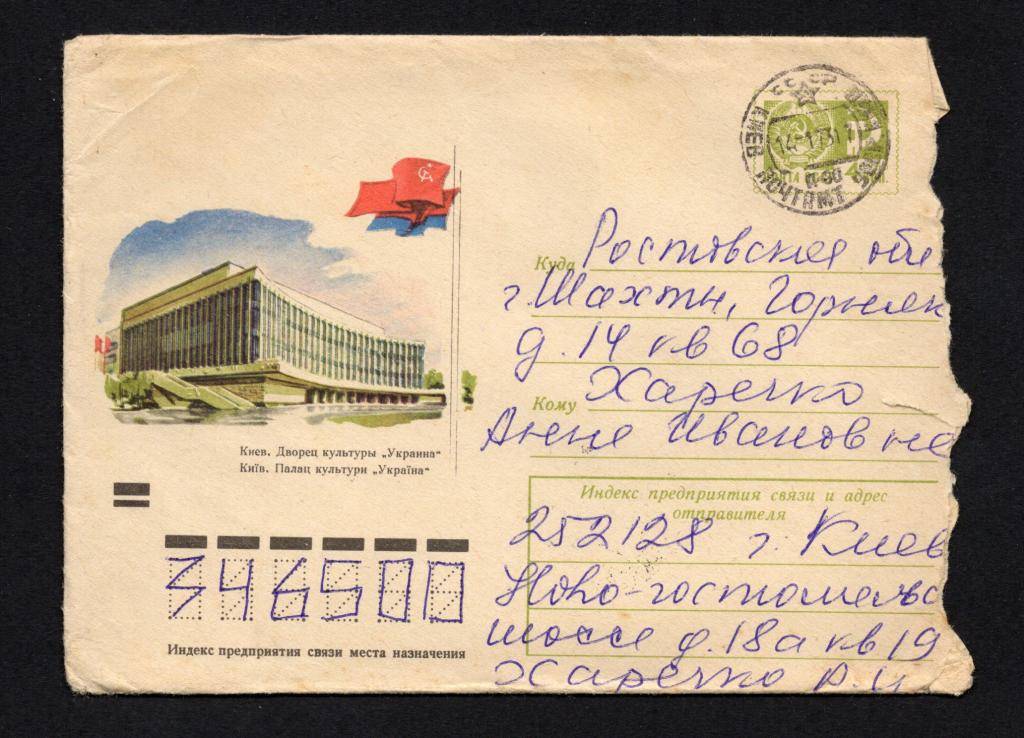 СССР
КИЕВ ПОЧТАМТ
Куда Ростовская обл
г. Шахты, Горняк
д. 14 кв 68
Кому Харечко
Анне Ивановне
Киев. Дворец культуры „Украина“
Київ. Палац культури „Україна“
Индекс предприятия связи и адрес
отправителя
252128 г. Киев
Ново-гостомельс
шоссе д. 18а кв 19
Харечко А. И
346500
Индекс предприятия связи места назначения